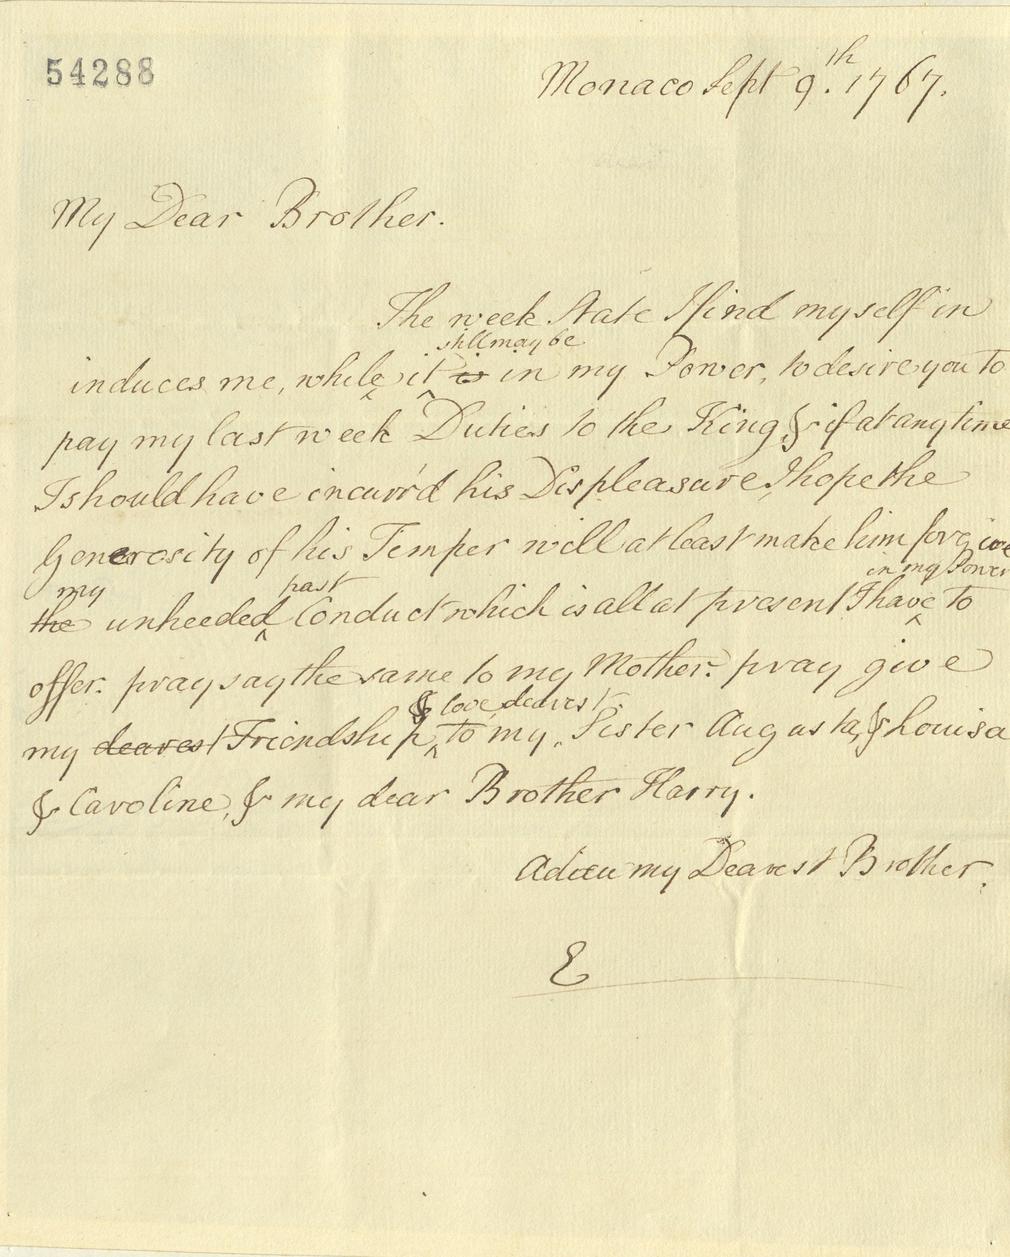 54288
Monaco Sept 9.th 1767.
My Dear Brother.
The week State I find myself in
still may be
induces me, while it is in my Power, to desire you to
pay my last week Duties to the King, & if at any time
I should have incurr'd his Displeasure, I hope the
Generosity of his Temper will at least make him forgive
my past in my Power
the unheeded Conduct which is all at present I have to
offer. pray say the same to my Mother. pray give
& love dearest
my dearest Friendship, to my Sister Augusta, & Louisa
& Caroline, & my dear Brother Harry.
Adieu my Dearest Brother.
E